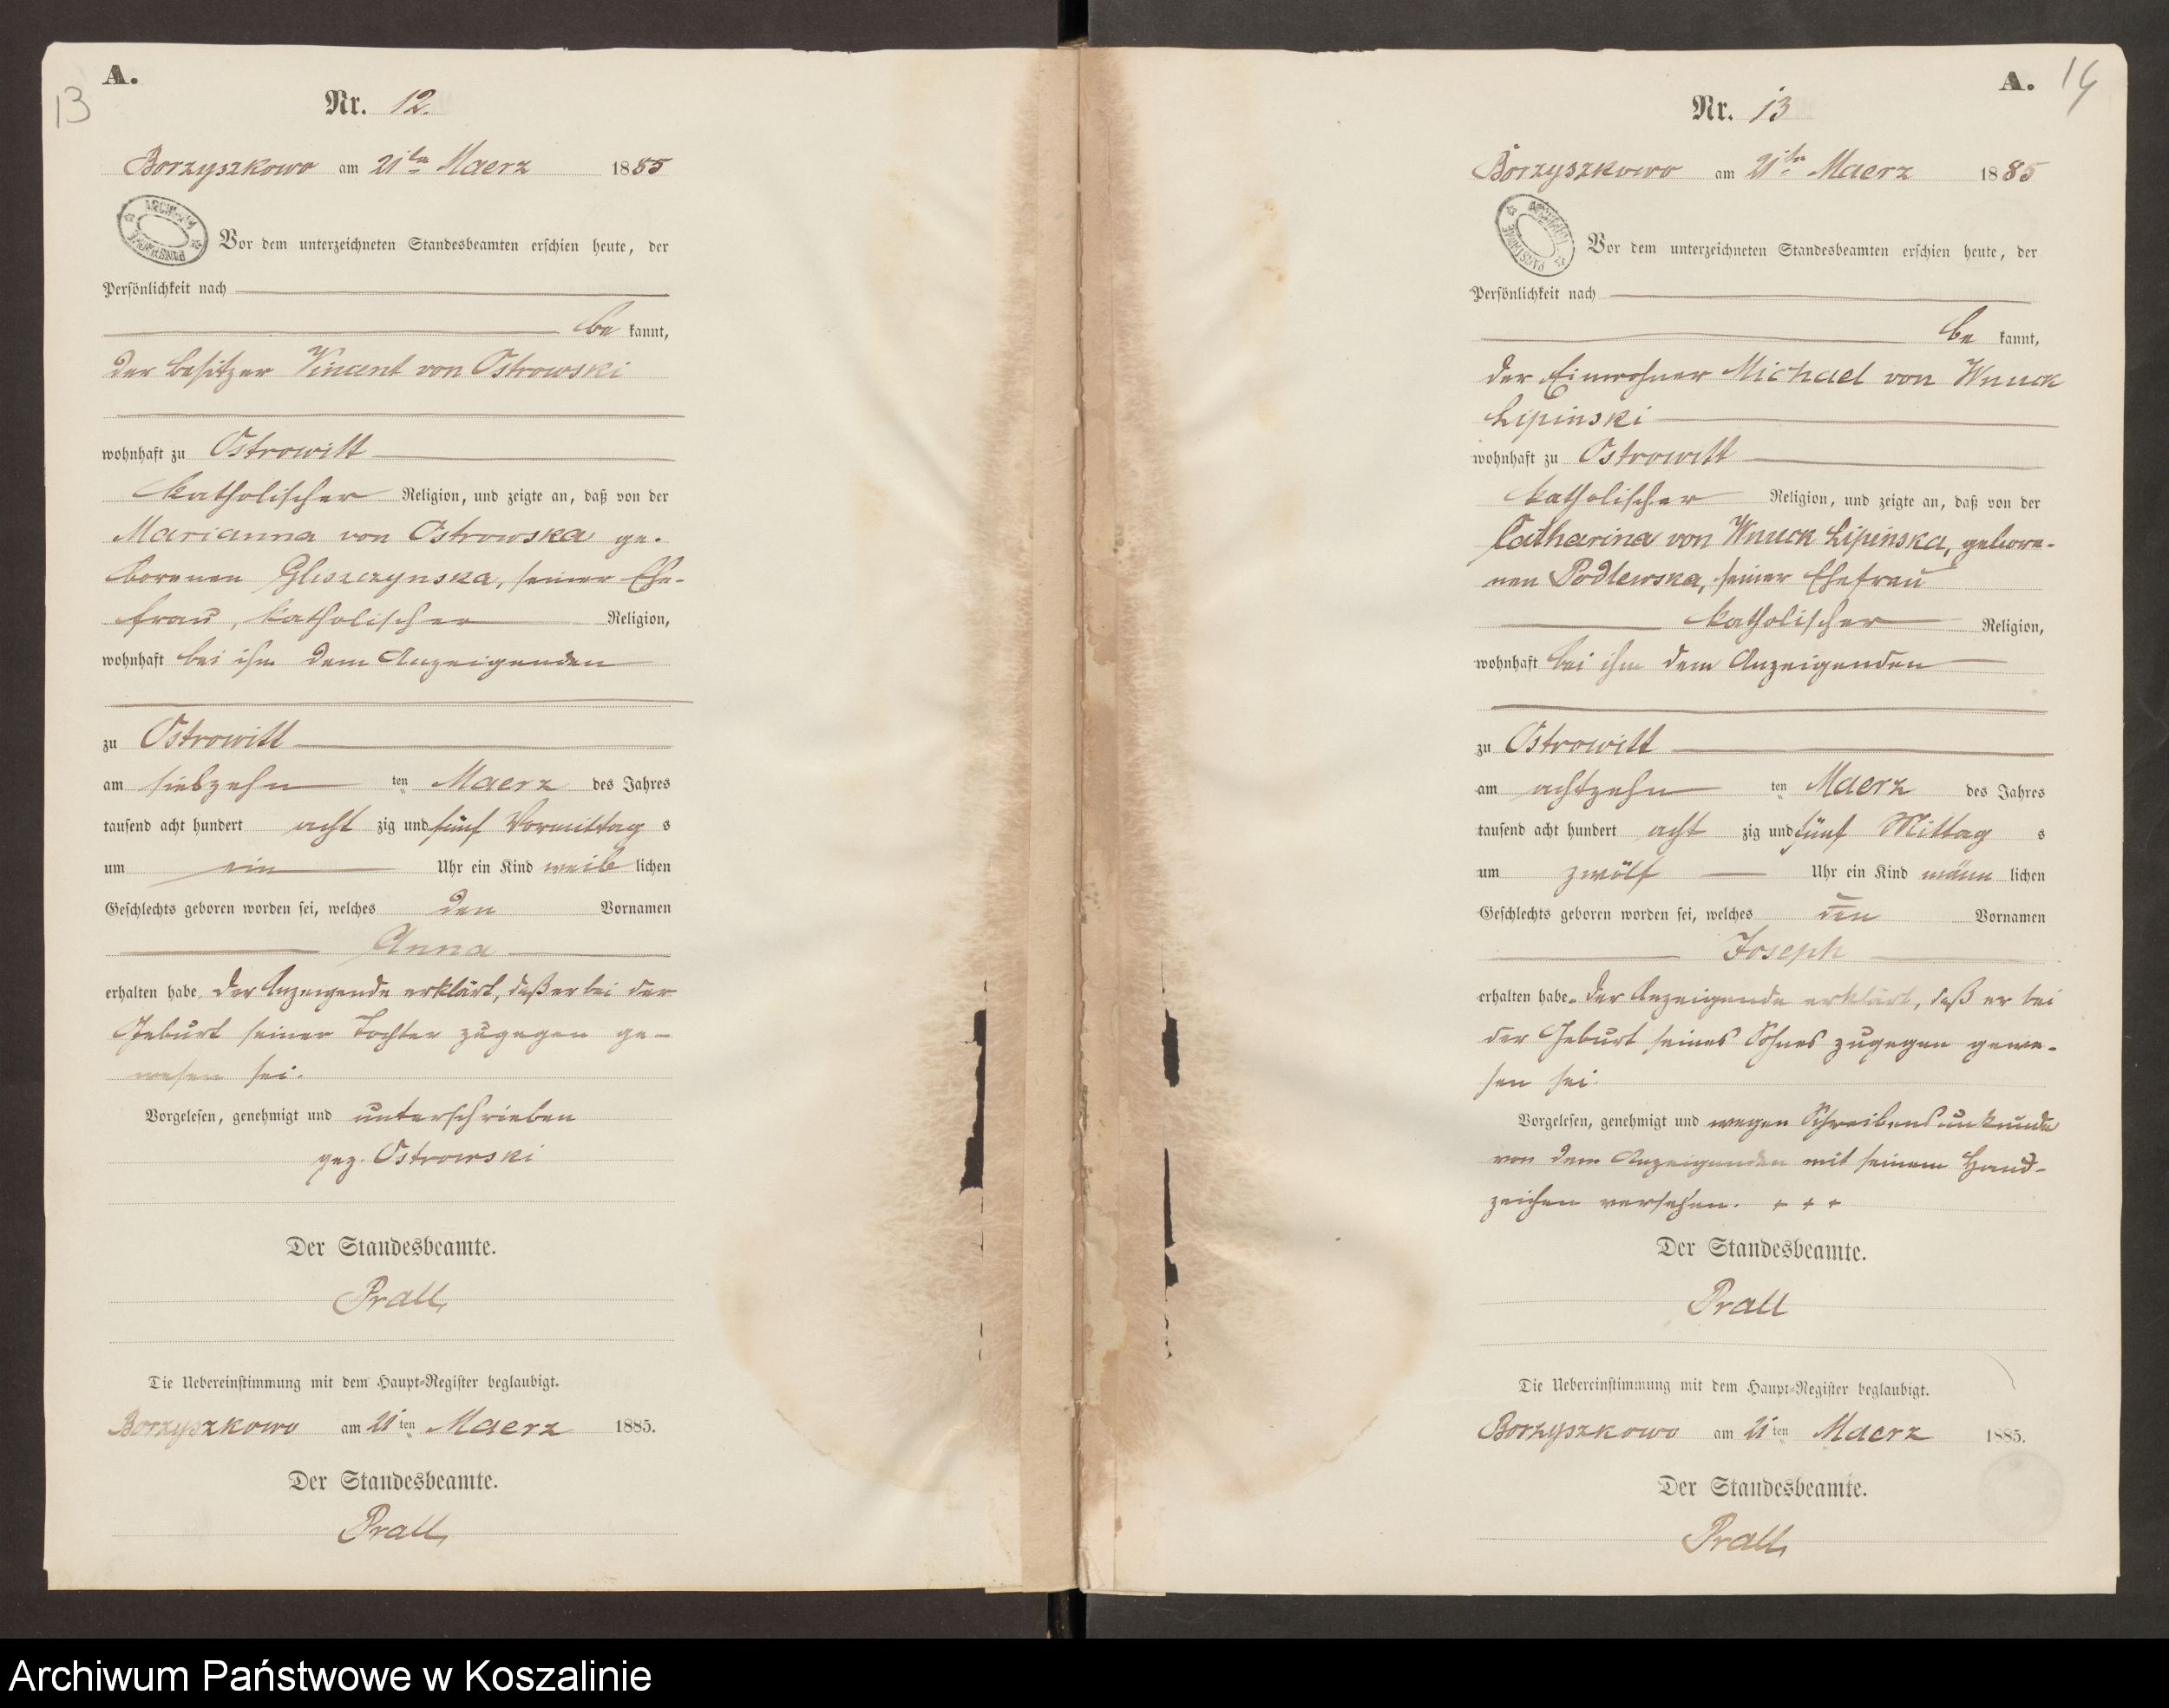 13
A.
Nr. 12.
Borzyszkowo am 21ten Maerz 1885
ARCHIWUM PAŃSTWOWE
Vor dem unterzeichneten Standesbeamten erschien heute, der
Persönlichkeit nach
be kannt,
der Besitzer Vincent von Ostrowski
wohnhaft zu Ostrowitt
katholischer Religion, und zeigte an, daß von der
Marianna von Ostrowska ge-
borenen Gliszczynska, seiner Ehe-
frau, katholischer Religion,
wohnhaft bei ihm dem Anzeigenden
zu Ostrowitt
am siebzehn ten Maerz des Jahres
tausend acht hundert acht zig und fünf Vormittag s
um ein Uhr ein Kind weib lichen
Geschlechts geboren worden sei, welches den Vornamen
Anna
erhalten habe. Der Anzeigende erklärt, daß er bei der
Geburt seiner Tochter zugegen ge-
wesen sei.
Vorgelesen, genehmigt und unterschrieben
gez. Ostrowski
Der Standesbeamte.
Prall
Die Uebereinstimmung mit dem Haupt-Register beglaubigt.
Borzyszkowo am 21 ten Maerz 1885.
Der Standesbeamte.
Prall
A. 14
Nr. 13
Borzyszkowo am 21ten Maerz 1885
ARCHIWUM PAŃSTWOWE
Vor dem unterzeichneten Standesbeamten erschien heute, der
Persönlichkeit nach
be kannt,
der Einwohner Michael von Wnuck
Lipinski
wohnhaft zu Ostrowitt
katholischer Religion, und zeigte an, daß von der
Catharina von Wnuck Lipinska, gebore-
nen Podlewska, seiner Ehefrau
katholischer Religion,
wohnhaft bei ihm dem Anzeigenden
zu Ostrowitt
am achtzehn ten Maerz des Jahres
tausend acht hundert acht zig und fünf Mittag s
um zwölf Uhr ein Kind männ lichen
Geschlechts geboren worden sei, welches den Vornamen
Joseph
erhalten habe. Der Anzeigende erklärt, daß er bei
der Geburt seines Sohnes zugegen gewe-
sen sei.
Vorgelesen, genehmigt und wegen Schreibensunkunde
von dem Anzeigenden mit seinem Hand-
zeichen versehen. + + +
Der Standesbeamte.
Prall
Die Uebereinstimmung mit dem Haupt-Register beglaubigt.
Borzyszkowo am 21 ten Maerz 1885.
Der Standesbeamte.
Prall
Archiwum Państwowe w Koszalinie